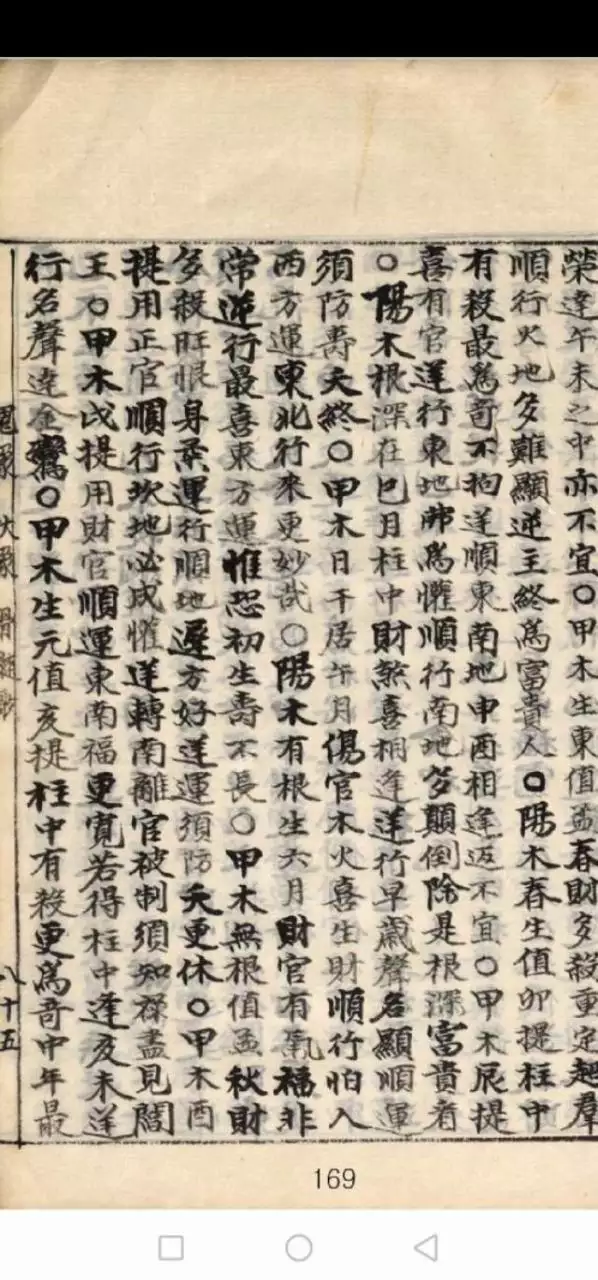 榮達午未之中亦不宜○甲木生東值孟春財多殺重定超群
順行火地多難顯逆主終為富貴人○陽木春生值卯提柱中
有殺最為奇不拘逆順東南地申酉相逢返不宜○甲木辰提
喜有官逆行東地非為懽順行南地多顛倒除是根深富貴看
○陽木根深在巳月柱中財煞喜相逢逆行早歲聲名顯順運
須防壽夭終○甲木日干居午月傷官木火喜生財順行怕入
西方運東北行來更妙哉○陽木有根生六月財官有氣福非
常逆行最喜東方運惟恐初生壽不長○甲木無根值孟秋財
多殺旺恨身柔運行順地遲方好逆運須防夭更休○甲木酉
提用正官順行坎地必成懽逆轉南離官被制須知祿盡見閻
王○甲木戌提用財官順運東南福更寬若得柱中逢亥未逆
行名聲達金鸞○甲木生元值亥提柱中有殺更為奇中年最
八十五
169